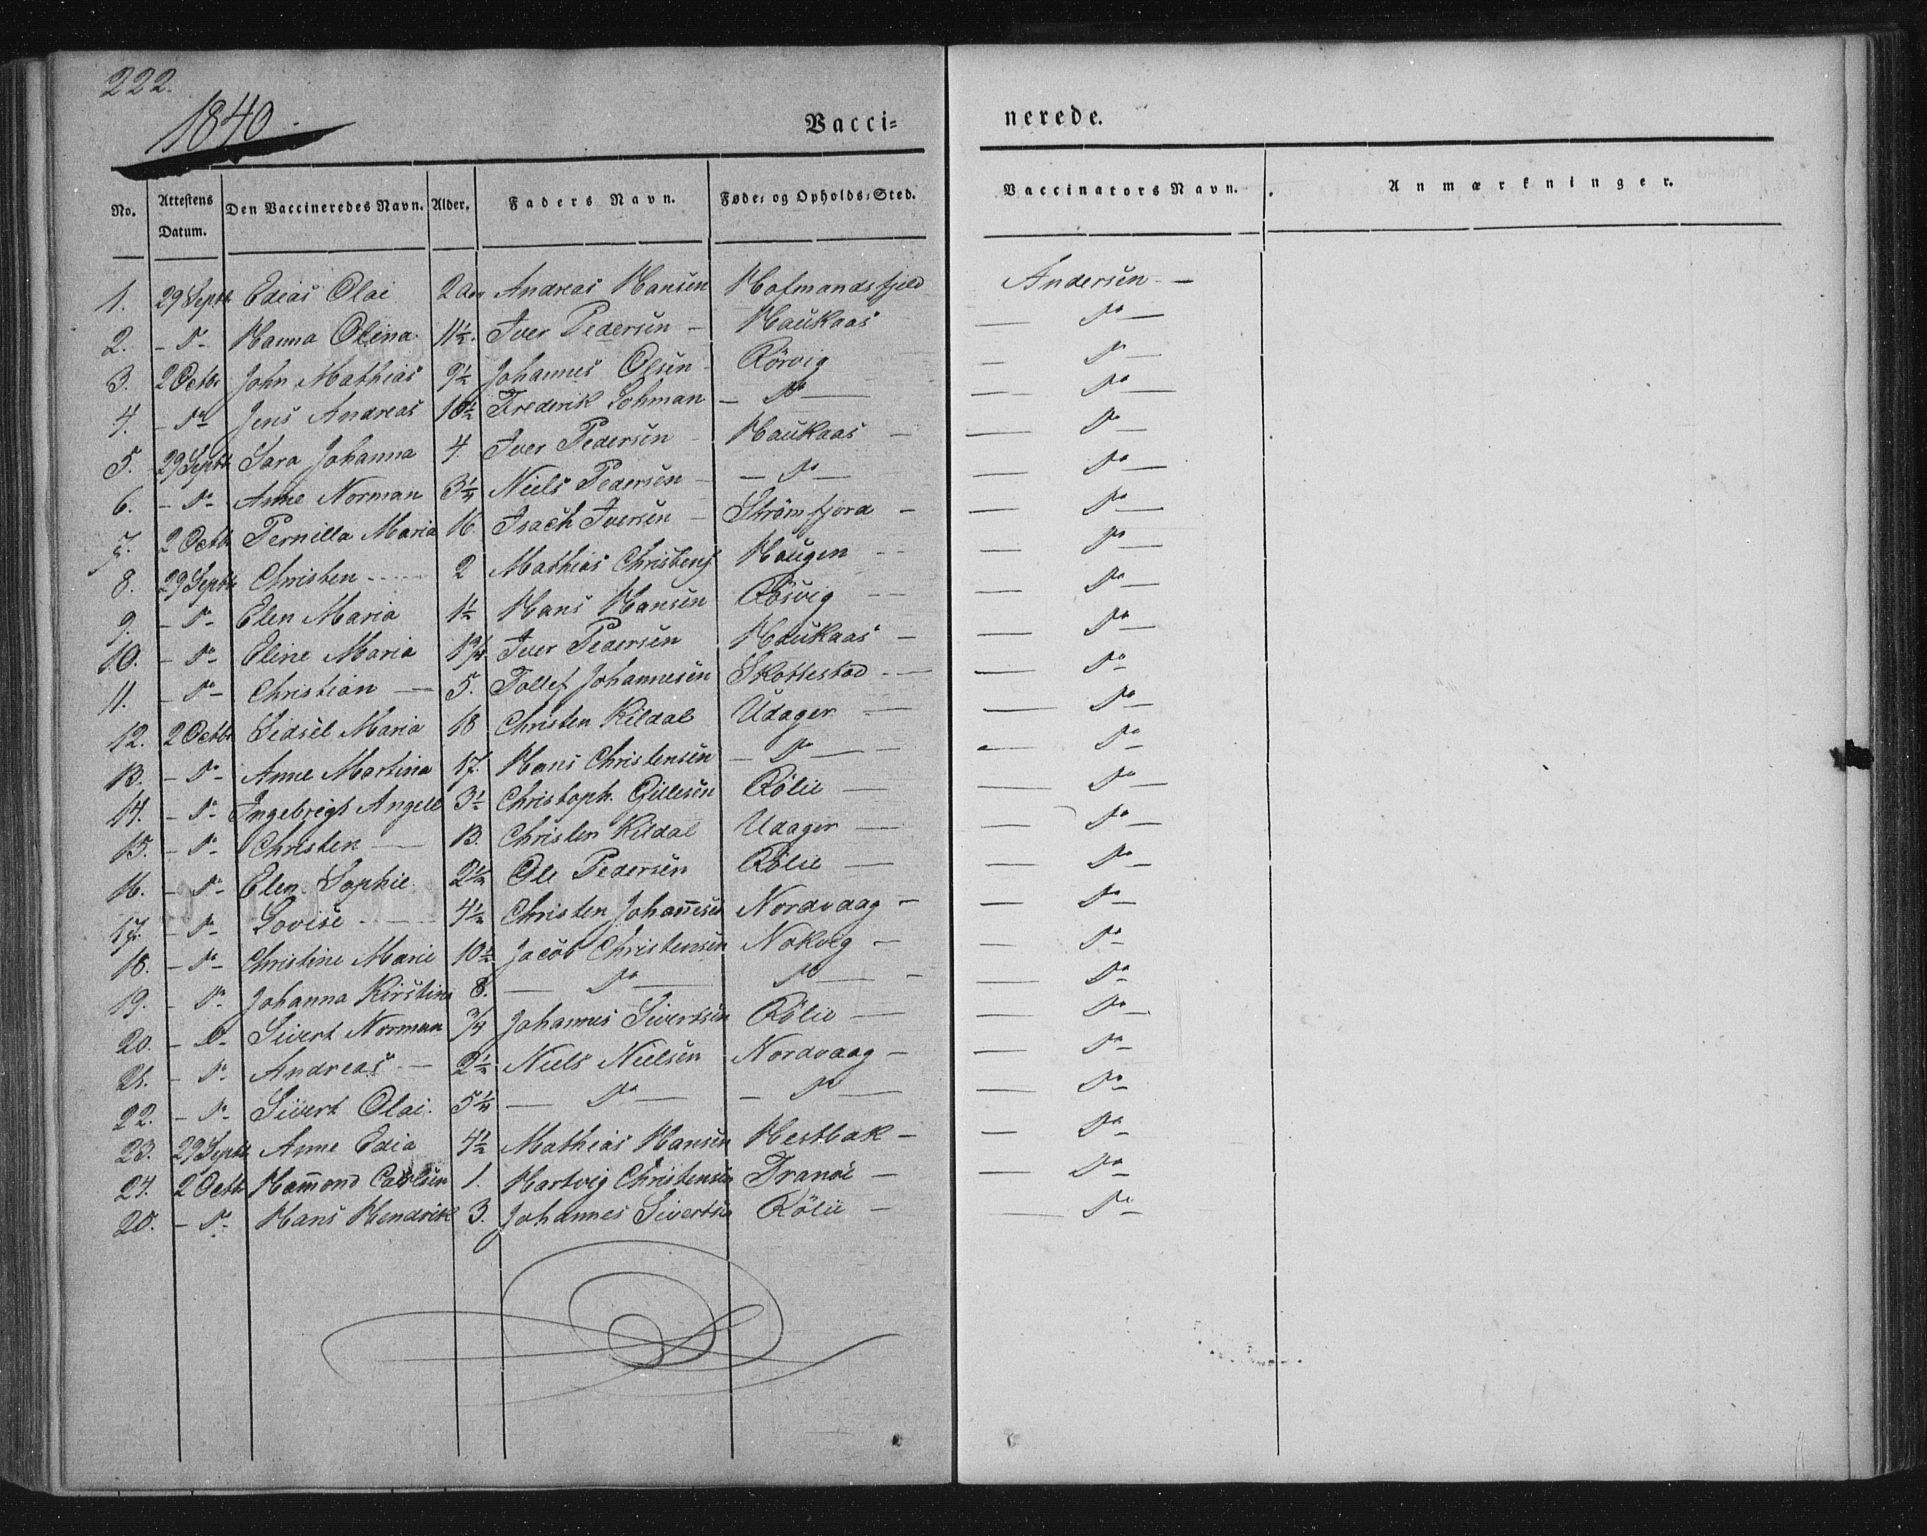 222.
1840.
Vacci= nerede.
No. Attestens Datum. Den Vaccineredes Navn. Alder. Faders Navn. Føde= og Opholds=Sted. Vaccinators Navn. Anmærkninger.
1. 29 Septb Edias Olai 2 Aar Andreas Hansen Hofmandsfjeld Andersen —
2. - do - Hanna Olina 11½. Iver Pedersen - Haukaas — do —
3. 2 Octbr John Mathias 9½ Johannes Olsen - Rörvig — do —
4. - do Jens Andreas 10½ Frederik Lohman - do — — do —
5. 29 Septb Sara Johanna 4. Iver Pedersen - Haukaas — — do —
6. - do - Anne Norman 3¼ Niels Pedersen - - do — — do —
7. 2 Octb Pernilla Maria 16. Isach Iversen - Strömfjord - — do —
8. 29 Septb Christen - - - 2 Mathias Christens Haugen - - — do —
9. - do - Elen Maria 1½ Hans Hansen Rösvig - - — do —
10. - do - Eline Maria 1¾ Iver Pedersen Haukaas - — do —
11. - do - Christian — 5. Tollef Johannesen Skottestad - — — do -
12. 2 Octbr Sidsel Maria 18 Christen Kildal Udager — — do —
13. - do - Anne Martina 17. Hans Christensen - do — - — do -
14. - do - Ingebrigt Angell 3½ Christoph. Gillesen Rölie — — do —
15. - do - Christen — 13. Christen Kildal Udager — — do —
16. - do - Elen Sophie 2½ Ole Pedersen Rölie — — do -
17. - do - Lovise - - - 4½ Christen Johannesen Nordvaag - — do -
18. - do - Christine Marie 10½ Jacob Christensen Nokvig - — do -
19. - do - Johanna Kirstine 8. — do — do — - — do -
20. - do - Sivert Norman ¾ Johannes Sivertsen Rölie — — do -
21. - do - Andreas - — 2½ Niels Nielsen Nordvaag - — do -
22. - do - Sivert Olai. 5¼ — do — - do — — do -
23. 29 Septb Anne Edia 4½ Mathias Hansen Hestbak - — do -
24. 2 Octb Hammond Carolsen 1. Hartvig Christensen Tranöe - — do -
25. - do - Hans Hendrik 3. Johannes Sivertsen Rölie - — do -